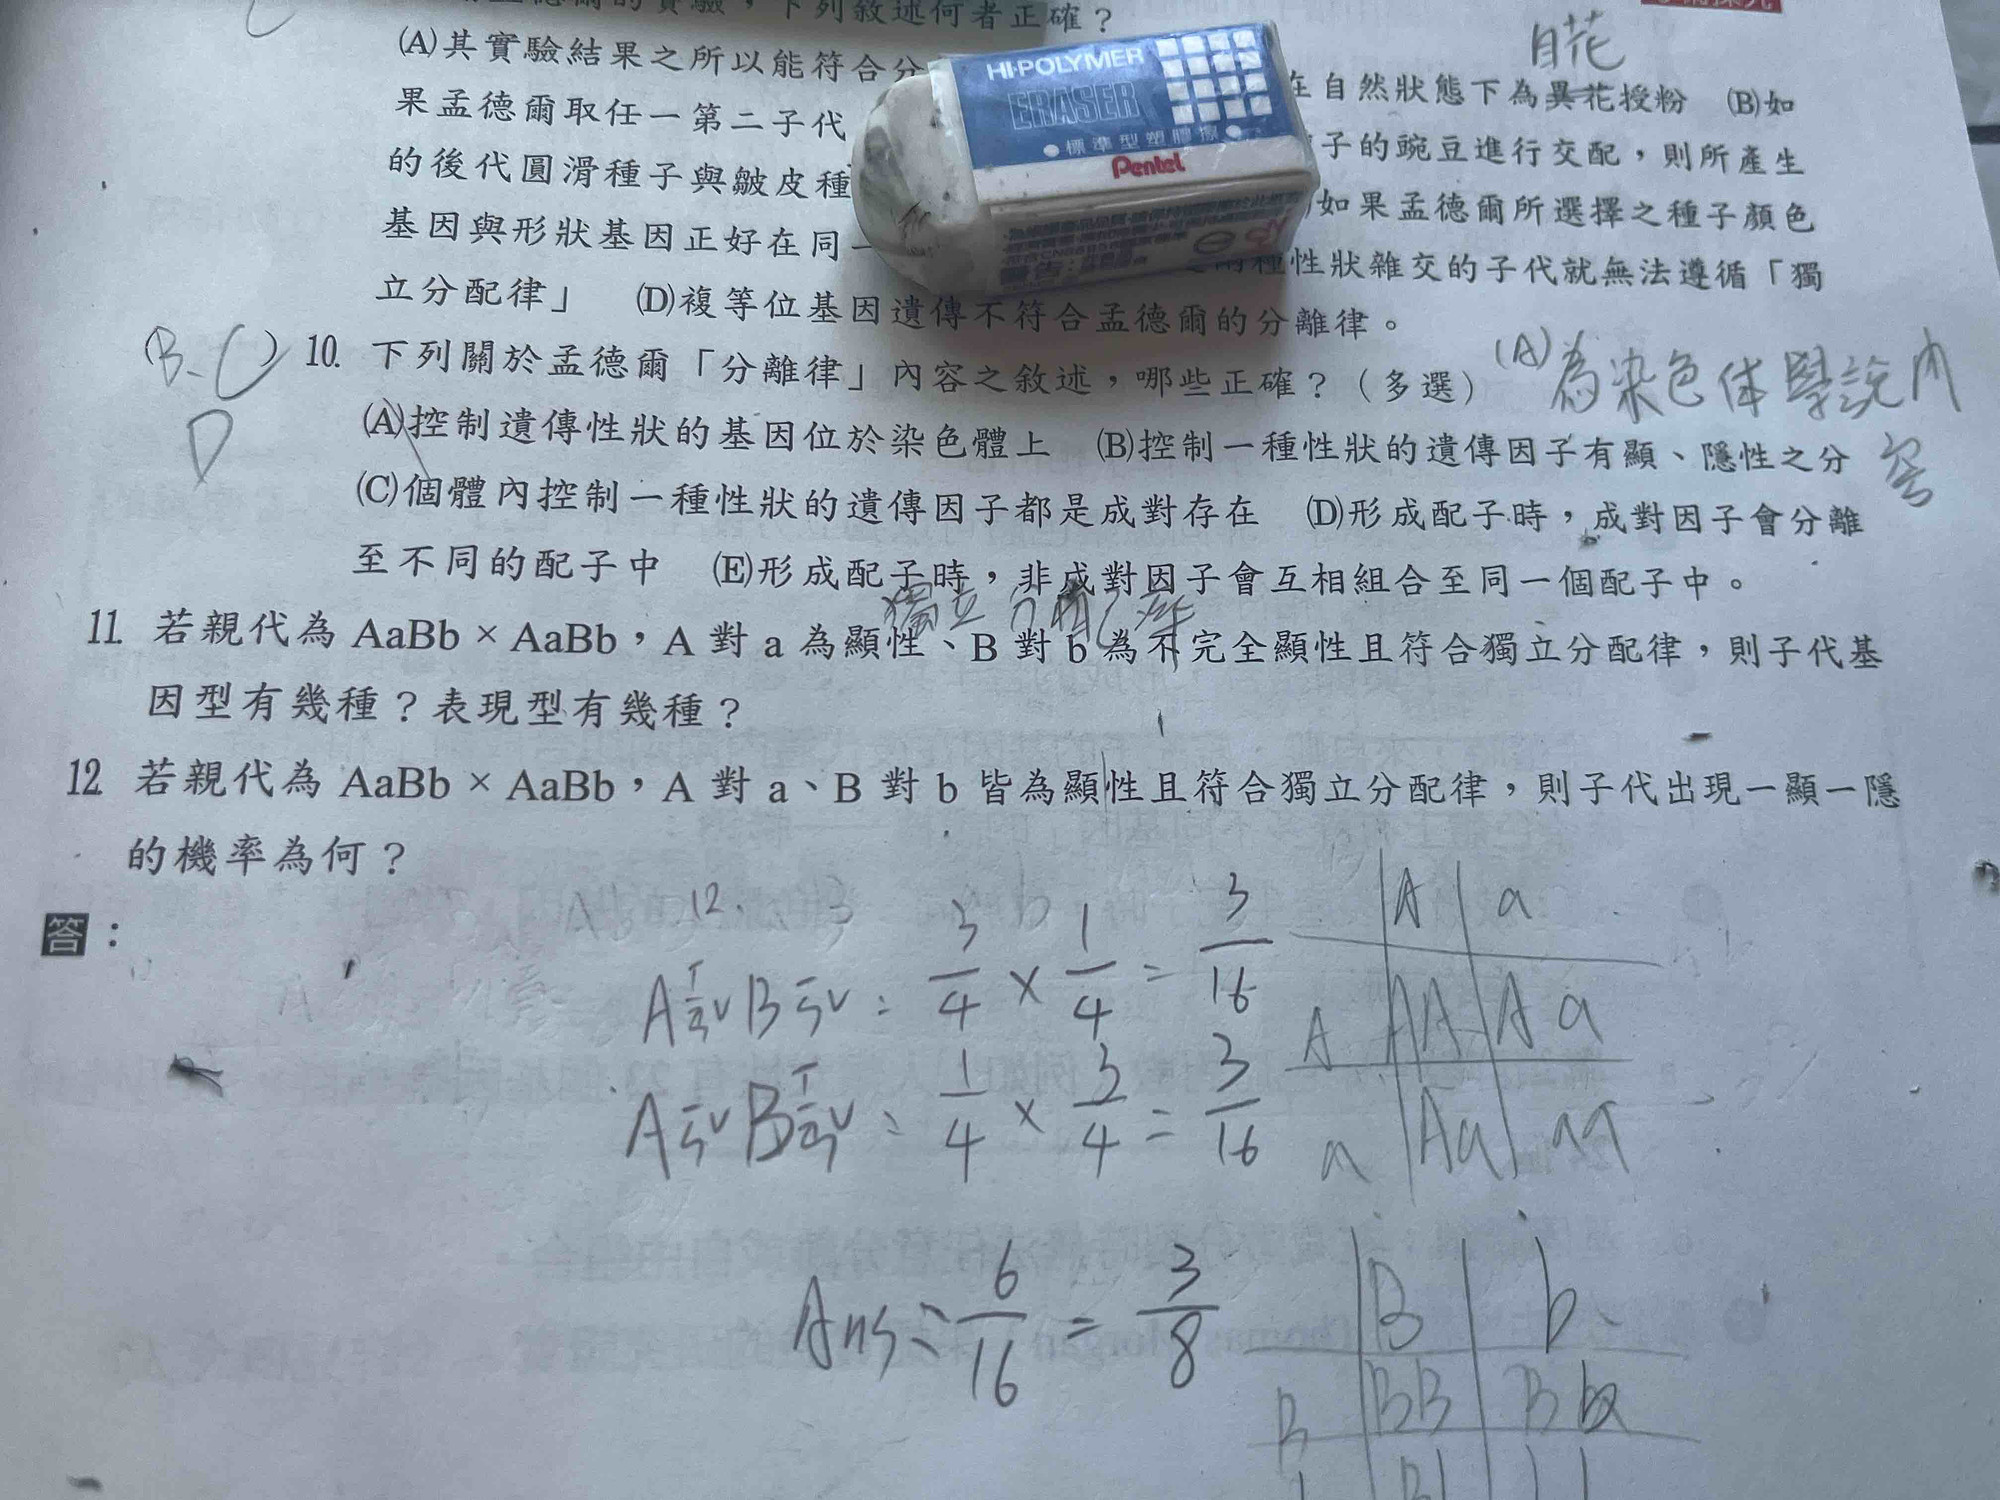 下列敘述何者正確？
自花
(A)其實驗結果之所以能符合分
在自然狀態下為異花授粉 (B)如
果孟德爾取任一第二子代
子的豌豆進行交配，則所產生
的後代圓滑種子與皺皮種
如果孟德爾所選擇之種子顏色
基因與形狀基因正好在同一
種性狀雜交的子代就無法遵循「獨
立分配律」 (D)複等位基因遺傳不符合孟德爾的分離律。
HI-POLYMER
ERASER
標準型塑膠擦
Pentel
(B、C)
D
10. 下列關於孟德爾「分離律」內容之敘述，哪些正確？（多選）
(A)為染色体學說內容
(A)控制遺傳性狀的基因位於染色體上 (B)控制一種性狀的遺傳因子有顯、隱性之分
(C)個體內控制一種性狀的遺傳因子都是成對存在 (D)形成配子時，成對因子會分離
至不同的配子中 (E)形成配子時，非成對因子會互相組合至同一個配子中。
獨立分配律
11. 若親代為 AaBb × AaBb，A 對 a 為顯性、B 對 b 為不完全顯性且符合獨立分配律，則子代基
因型有幾種？表現型有幾種？
12 若親代為 AaBb × AaBb，A 對 a、B 對 b 皆為顯性且符合獨立分配律，則子代出現一顯一隱
的機率為何？
答：
12.
A B = 3/4 × 1/4 = 3/16
A B = 1/4 × 3/4 = 3/16
Ans: 6/16 = 3/8
A a
A AA Aa
a Aa aa
B b
B BB Bb